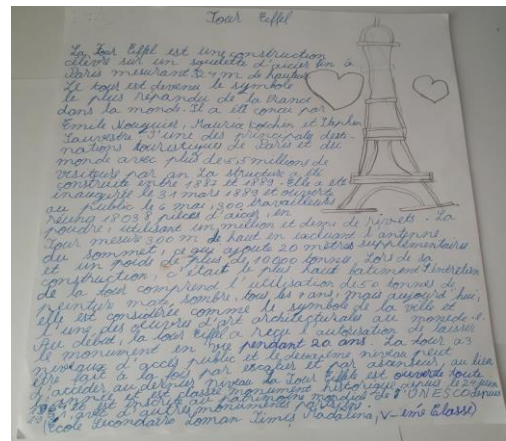 Tour Eiffel
La Tour Eiffel est une construction
élevée sur un squelette d'acier fin à
Paris mesurant 324 m de hauteur
Le tour est devenu le symbole
le plus répandu de la France
dans le monde. Il a été conçu par
Emile Nouguier, Maurice Koechin et Stephen
Sauvestre. J'une des principale desti-
nations touristiques de Paris et du
monde avec plus de 5,5 millions de
visiteurs par an. La structure a été
construite entre 1887 et 1889. Elle a été
inaugurée le 31 mars 1889 et ouverte
au public le 6 mai, 300 travailleurs
réunis 18038 pièces d'acier, en
poudre, utilisant un million et demi de rivets. La
Tour mesure 300 m de haut en incluant l'antenne
du sommet, ce que ajoute 20 mètres supplémentaires
et un poids de plus de 10000 tonnes. Lors de sa
construction, c'était le plus haut bâtiment. L'entretien
de la tour comprend l'utilisation de 50 tonnes de
peinture mate, sombre, tous les 7 ans, mais aujourd'hui,
elle est considérée comme le symbole de la ville et
l'une des œuvres d'art architecturales au monde.
Au début, la tour Eiffel a reçu l'autorisation de laisser
le monument en vie pendant 20 ans. La tour a 3
niveaux d'accès public et le deuxième niveau peut
être fait à la fois par escalier et par asenteur, au lieu
d'accéder au dernier niveau. La Tour Eiffel est ouverte toute
l'année et est classée monument historique depuis le 24 juin
et est inscrite au patrimoine mondial de l'UNESCO depuis
avec d'autres monuments parisiens.
(École Secondaire Toman Timiș Mădălina, V-ème Classe)